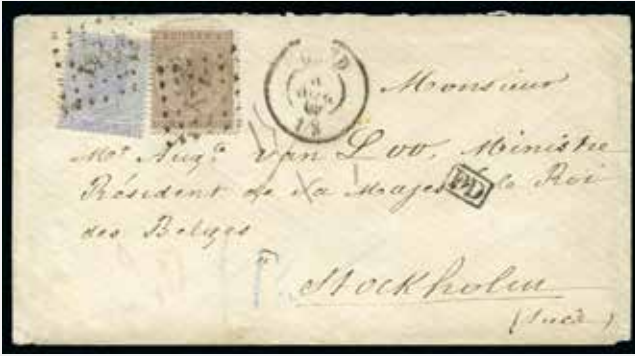 GAND
Monsieur
Mr. Augte van Loo, Ministre
Résident de Sa Majesté le Roi
des Belges
PD
à
Stockholm
(Suède)